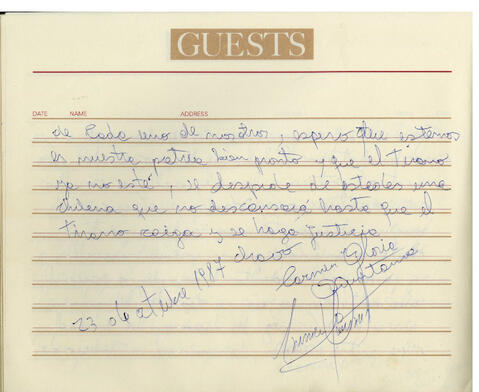 GUESTS
DATE NAME ADDRESS
de cada uno de nosotros, espero que estemos
en nuestra patria bien pronto y que el tirano
ya no esté, se despide de ustedes una
chilena que no descansará hasta que el
tirano caiga y se haga justicia
chavo
Carmen Gloria
Quintana
23 octubre 1987